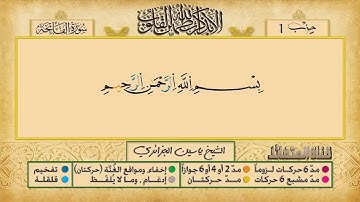 حزب 1
ألا بذكر الله تطمئن القلوب
سورة الفاتحة
بِسْمِ اللَّهِ الرَّحْمَٰنِ الرَّحِيمِ
الشيخ ياسين الجزائري
مدّ 6 حركات لزوماً
مدّ 2 أو 4 أو 6 جوازاً
إخفاء، ومواقع الغُنَّة (حركتان)
تفخيم
مدّ مشبع 6 حركات
مدّ حركتان
إدغام، وما لا يُلفَظ
قلقلة